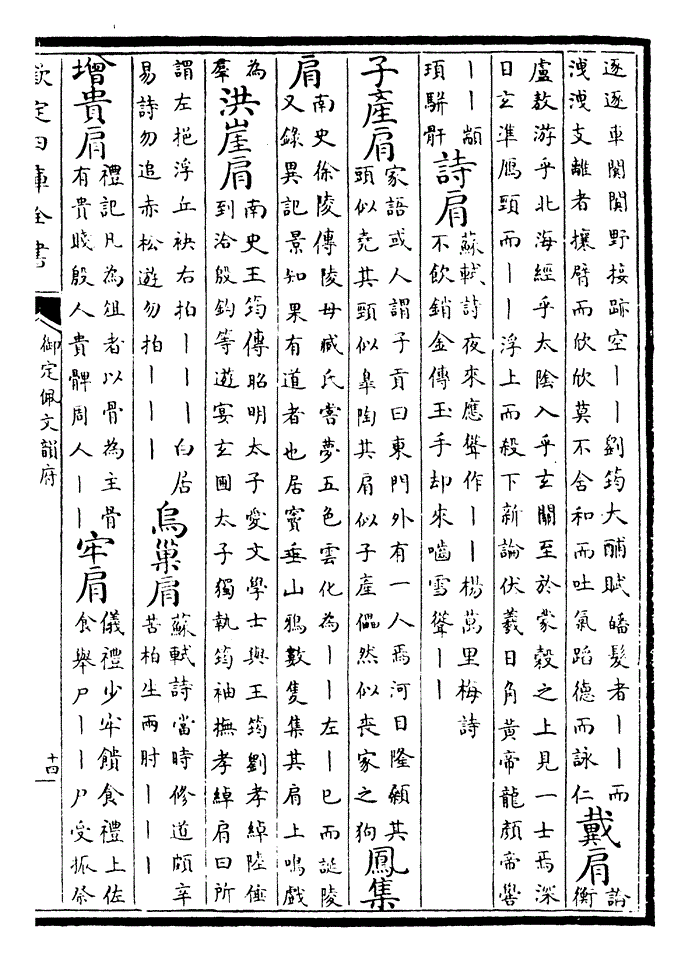 逐逐車闐闐野接跡空丨丨劉筠大酺賦皤髮者丨丨而
洩洩支離者攘臂而欣欣莫不含和而吐氣蹈德而詠仁
戴肩
論
衡
盧敖游乎北海經乎太陰入乎玄關至於蒙穀之上見一士焉深
目玄準鴈頸而丨丨浮上而殺下新論伏羲日角黄帝龍顔帝嚳
丨丨顓
頊駢骭
詩肩
蘇軾詩夜來應聳作丨丨楊萬里梅詩
不飲銷金傳玉手却來嚙雪聳丨丨
子產肩
家語或人謂子貢曰東門外有一人焉河目隆顙其
頭似堯其頸似臯陶其肩似子產儡然似喪家之狗
鳳集
肩
南史徐陵傳陵母臧氏嘗夢五色雲化為丨丨左丨巳而誕陵
又錄異記景知果有道者也居竇垂山鴉數隻集其肩上鳴戲
為
羣
洪崖肩
南史王筠傳昭明太子愛文學士與王筠劉孝綽陸倕
到洽殷鈞等遊宴玄圃太子獨執筠袖撫孝綽肩曰所
謂左挹浮丘袂右拍丨丨丨白居
易詩勿追赤松遊勿拍丨丨丨
烏巢肩
蘇軾詩當時修道頗辛
苦柏生兩肘丨丨丨
增貴肩
禮記凡為俎者以骨為主骨
有貴賤殷人貴髀周人丨丨
牢肩
儀禮少牢饋食禮上佐
食舉尸丨丨尸受振祭
欽定四庫全書
御定佩文韻府
十四